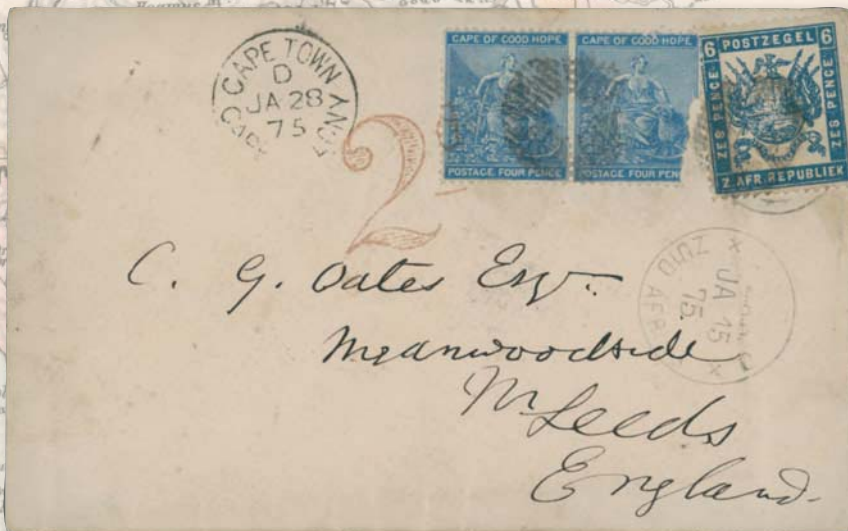 CAPE TOWN
CAPE COLONY
D
JA 28
75
2
CAPE OF GOOD HOPE
POSTAGE. FOUR PENCE
CAPE OF GOOD HOPE
POSTAGE. FOUR PEN
6 POSTZEGEL 6
ZES PENCE
ZES PENCE
Z. AFR. REPUBLIEK
JA 15
75
ZUID AFR
C. G. Oates Esqr.
Meanwoodside
Nr. Leeds
England.